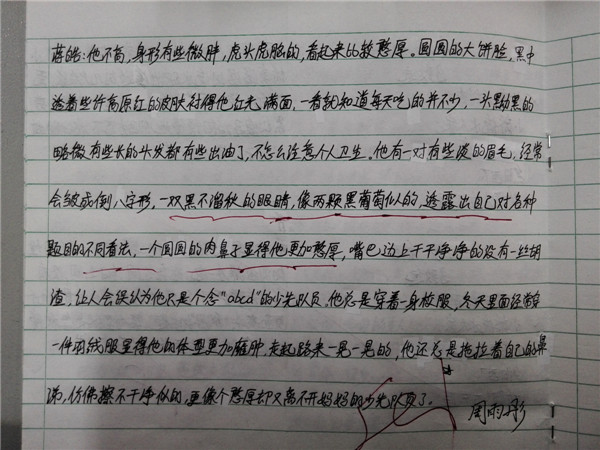 蒋皓：他不高，身形有些微胖，虎头虎脑的，看起来比较憨厚。圆圆的大饼脸，黑中
透着些许高原红的皮肤衬得他红光满面，一看就知道每天吃的并不少，一头黝黑的
略微有些长的头发都有些出油了，不怎么注意个人卫生。他有一对有些淡的眉毛，经常
会皱成倒八字形，一双黑不溜秋的眼睛，像两颗黑葡萄似的，透露出自己对各种
题目的不同看法，一个圆圆的肉鼻子显得他更加憨厚，嘴巴边上干干净净的没有一丝胡
渣，让人会误认为他只是个念"abcd"的少先队员。他总是穿着一身校服，冬天里面经常穿
一件羽绒服显得他的体型更加臃肿，走起路来一晃一晃的，他还总是拖拉着自己的鼻
涕，仿佛擦不干净似的，更像个憨厚却又离不开妈妈的少先队员了。
周雨彤